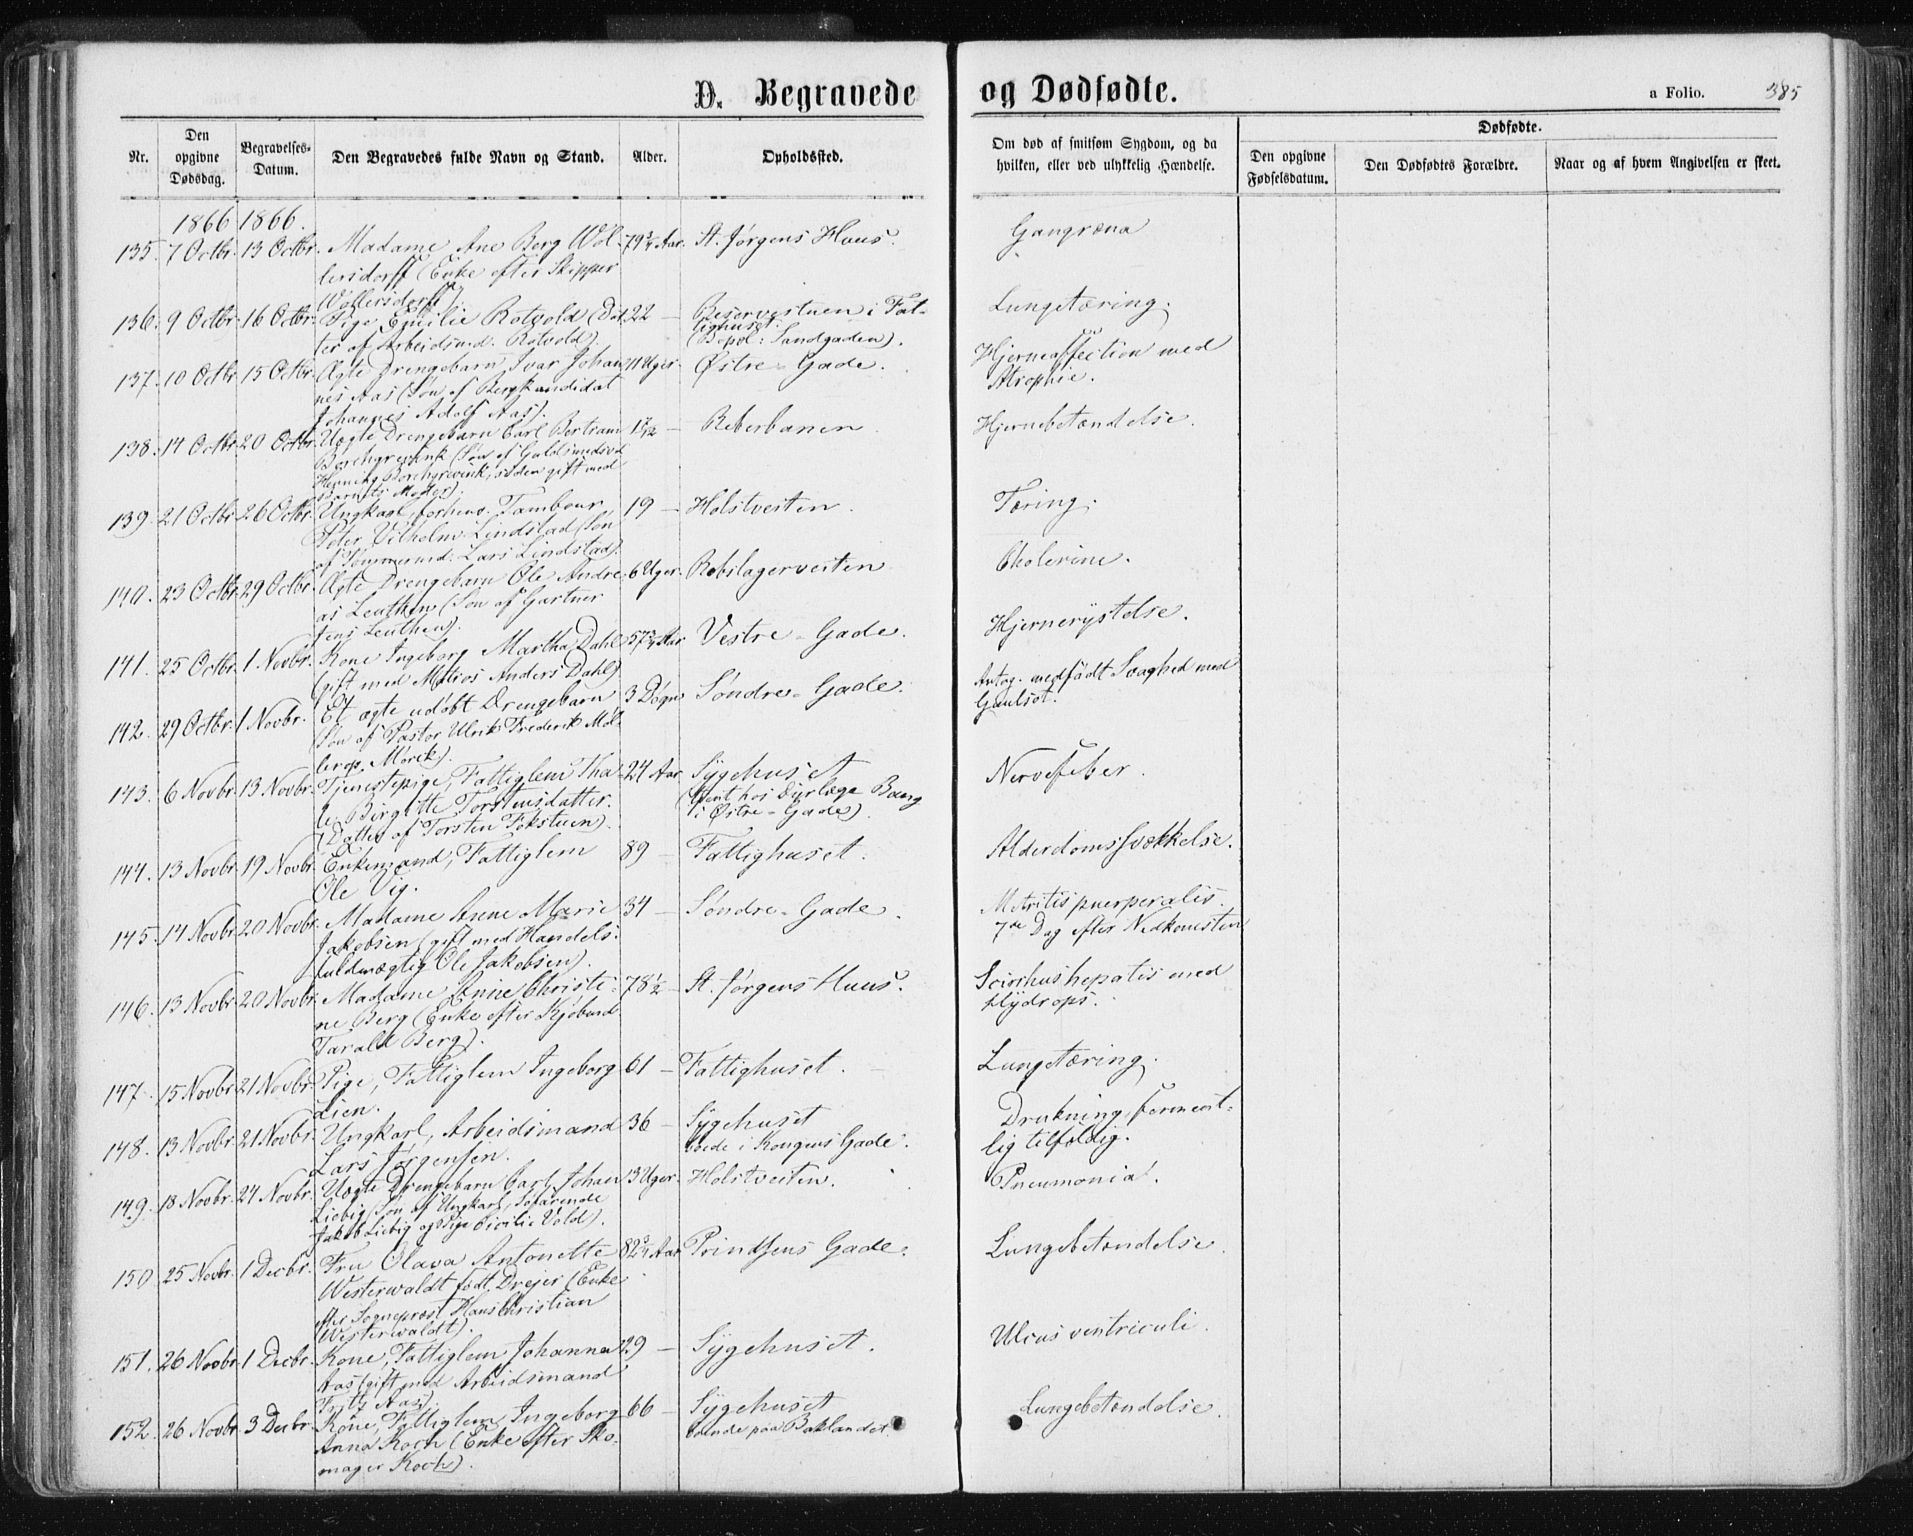 D. Begravede og Dødfødte.
a Folio. 385
Nr.
Den opgivne Dødsdag.
Begravelses-Datum.
Den Begravedes fulde Navn og Stand.
Alder.
Opholdssted.
Om død af smitsom Sygdom, og da hvilken, eller ved ulykkelig Hændelse.
Dødfødte.
Den opgivne Fødselsdatum.
Den Dødfødtes Forældre.
Naar og af hvem Angivelsen er skeet.
1866 1866.
135. 7 Octbr. 13 Octbr. Madame Ane Berg Wöl- 79 3/4 Aar. St. Jørgens Huus. Gangræna
lersdorff (Enke efter Skipper
Wöllersdorff).
136. 9 Octbr. 16 Octbr. Pige Emilie Rotvold (Dat- 22 — Reservestuen i Fat- Lungetæring.
ter af Arbeidsmd. Rotvold). tighuset. (Bopæl: Sandgaden).
137. 10 Octbr. 15 Octbr. Ægte Drengebarn Ivar Johan- 11 Uger. Østre-Gade. Hjerneaffection med
nes Aas (Søn af Bergkandidat Atrophie.
Johannes Adolf Aas).
138. 14 Octbr. 20 Octbr. Uægte Drengebarn Carl Bertram — Reberbanen. Hjernebetændelse.
Borchgrevink (Søn af Guldsmedsvd
Henning Borchgrevink, siden gift med
Barnets Moder).
139. 21 Octbr. 26 Octbr. Ungkarl, forhenv. Tambour 19 — Holstveiten. Tæring.
Peter Vilhelm Lindstad (Søn
af Tømmermd. Lars Lindstad).
140. 23 Octbr. 29 Octbr. Ægte Drengebarn Ole Andre- 6 Uger. Rebslagerveiten Cholerine.
as Leuthen (Søn af Gartner
Jens Leuthen).
141. 25 Octbr. 1 Novbr. Kone Ingeborg Martha Dahl 57 3/4 Aar Vestre-Gade. Hjernerystelse.
(gift med Anders Dahl)
142. 29 Octbr. 1 Novbr. Et ægte udøbt Drengebarn 3 Døgn Søndre-Gade. Antag. medfødt Svaghed med
(Søn af Pastor Ulrik Frederik Møl- Gaulsot.
lerop Mørck).
143. 6 Novbr. 13 Novbr. Tjenestepige, Fattiglem Tha- 24 Aar. Sygehuset Nervefeber.
le Birgitte Torstensdatter (tjent hos Dyrlæge Bang
(Datter af Torsten Fokstuen). i Østre-Gade).
144. 13 Novbr. 19 Novbr. Enkemand, Fattiglem 89 — Fattighuset. Alderdomssvækkelse.
Ole Vig.
145. 14 Novbr. 20 Novbr. Madame Anne Marie 34 — Søndre-Gade. Metritis puerperalis.
Jakobsen (gift med Handels- 7de Dag efter Nedkomsten
fuldmægtig Ole Jakobsen).
146. 13 Novbr. 20 Novbr. Madame Anne Christi- 78 1/2 — St. Jørgens Huus. Scirrhus hepatis med
ne Berg (Enke efter Kjøbmd. Hydrops.
Tarald Berg).
147. 15 Novbr. 21 Novbr. Pige, Fattiglem Ingeborg 61 — Fattighuset. Lungetæring.
Lien.
148. 13 Novbr. 21 Novbr. Ungkarl, Arbeidsmand 36 — Sygehuset Drukning, formeent-
Lars Jørgensen. boede i Kongens Gade. lig tilfældig.
149. 18 Novbr. 24 Novbr. Uægte Drengebarn Carl Johan 13 Uger. Holstveiten. Pneumonia.
Liebig (Søn af Ungkarl, Søfarende
Jakob Liebig og Pige Cicilie Vold).
150. 25 Novbr. 1 Decbr. Fru Olava Antonette 82 3/4 Aar Prindsens Gade. Lungebetændelse.
Westerwaldt født Drejer (Enke
efter Sogneprest Hans Christian
Westerwaldt).
151. 26 Novbr. 1 Decbr. Kone, Fattiglem Johanna 29 — Sygehuset. Ulcus ventriculi.
Aas (gift med Arbeidsmand
Fritz Aas).
152. 26 Novbr. 3 Decbr. Kone, Fattiglem Ingeborg 66 — Sygehuset Lungebetændelse.
Anna Koch (Enke efter Sko- boende paa Baklandet.
mager Koch).